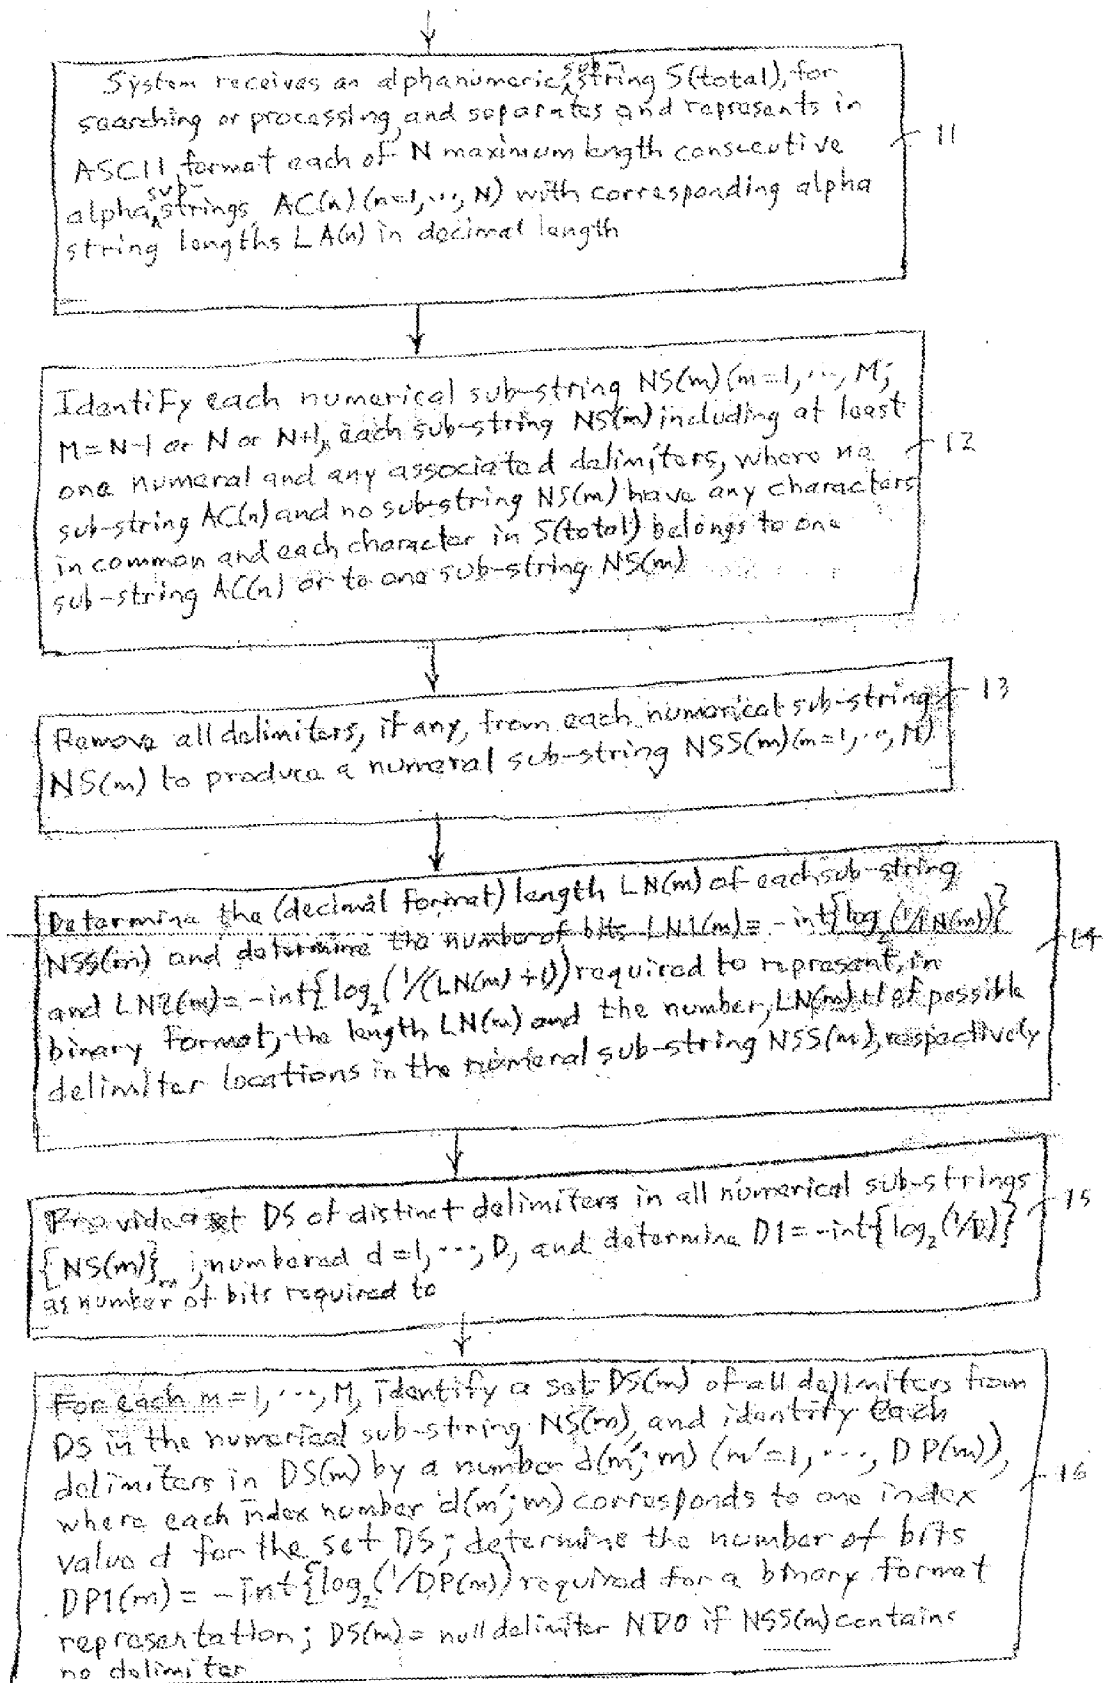 System receives an alphanumeric sub-string S(total), for
searching or processing, and separates and represents in
ASCII format each of N maximum length consecutive
alpha sub-strings AC(n) (n=1, ..., N) with corresponding alpha
string lengths LA(n) in decimal length
11
Identify each numerical sub-string NS(m) (m=1, ..., M;
M=N-1 or N or N+1), each sub-string NS(m) including at least
one numeral and any associated delimiters, where no
sub-string AC(n) and no sub-string NS(m) have any characters
in common and each character in S(total) belongs to one
sub-string AC(n) or to one sub-string NS(m)
12
Remove all delimiters, if any, from each numerical sub-string
NS(m) to produce a numeral sub-string NSS(m) (m=1, .., M)
13
Determine the (decimal format) length LN(m) of each sub-string
NSS(m) and determine the number of bits LN1(m) = -int{log2(1/LN(m))}
and LN2(m) = -int{log2(1/(LN(m)+1)) required to represent, in
binary format, the length LN(m) and the number, LN(m)+1 of possible
delimiter locations in the numeral sub-string NSS(m), respectively
14
Provide a set DS of distinct delimiters in all numerical sub-strings
{NS(m)}m, numbered d=1, ..., D, and determine D1 = -int{log2(1/D)}
as number of bits required to
15
For each m=1, ..., M, identify a set DS(m) of all delimiters from
DS in the numerical sub-string NS(m), and identify each
delimiters in DS(m) by a number d(m';m) (m'=1, ..., DP(m)),
where each index number d(m';m) corresponds to one index
value d for the set DS; determine the number of bits
DP1(m) = -int{log2(1/DP(m)) required for a binary format
representation; DS(m) = null delimiter ND0 if NSS(m) contains
no delimiter
16